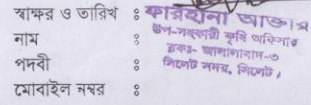 স্বাক্ষর ও তারিখ : ফারহানা আক্তার
নাম : উপ-সহকারী কৃষি অফিসার
পদবী : ব্লকঃ- আলালাবাদ-৩
সিলেট সদর, সিলেট।
মোবাইল নম্বর :